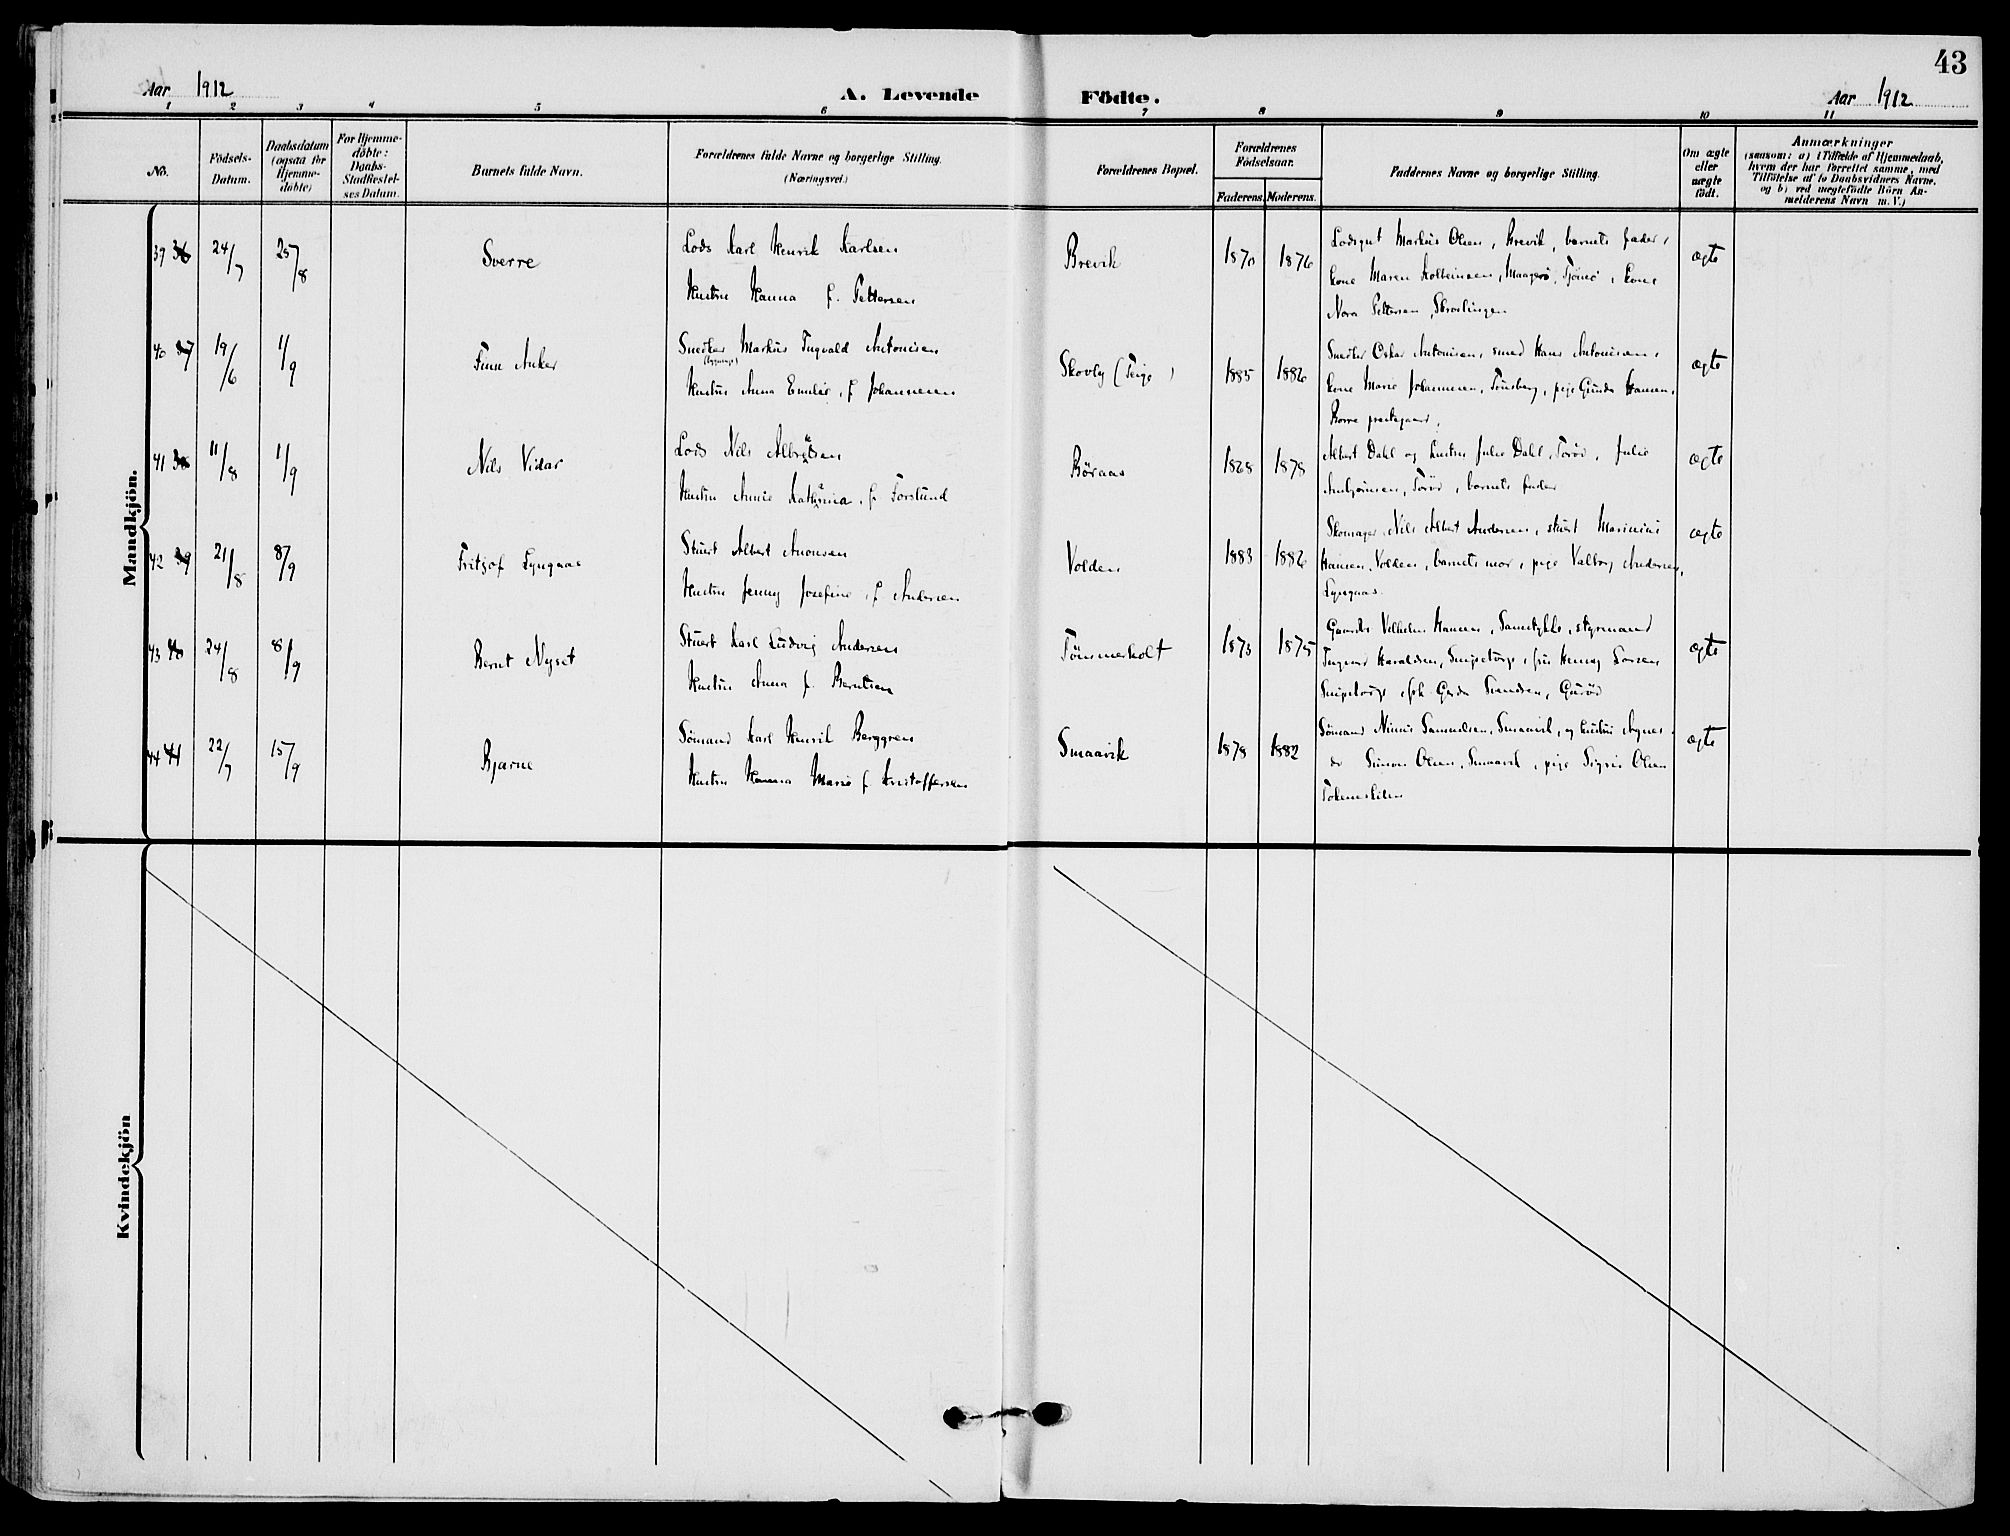 43
Aar 1912
A. Levende Födte.
Aar 1912
1 2 3 4 5 6 7 8 9 10 11
No.
Födsels-
Datum.
Daabsdatum
(ogsaa for
Hjemme-
döbte)
For Hjemme-
döbte:
Daabs-
Stadfæstel-
ses Datum.
Barnets fulde Navn.
Forældrenes fulde Navne og borgerlige Stilling.
(Næringsvei.)
Forældrenes Bopæl.
Forældrenes
Födselsaar.
Faderens.
Moderens.
Faddernes Navne og borgerlige Stilling.
Om ægte
eller
uægte
födt.
Anmærkninger
(saasom: a) i Tilfælde af Hjemmedaab,
hvem der har forrettet samme, med
Tilföielse af to Daabsvidners Navne.
og b) ved uægtefödte Börn An-
melderens Navn m. V.)
Mandkjön.
39 36 24/7 25/8 Sverre
Lods Karl Henrik Karlsen
Hustru Hanna f. Pettersen
Brevik 1870 1876
Lodsgut Markus Olsen, Brevik, barnets fader,
kone Maren Kolbeinsen, Maagerö, Tjömö, kone
Nora Pettersen,
ægte
40 37 19/6 1/9 Finn Anker
Snedker Markus Ingvald Antonisen
Hustru Anna Emilie, f. Johannesen
Skovly (Teige) 1885 1886
Snedker Oskar Antonisen, smed Hans Antonisen,
kone Marie Johannesen, Tönsberg, pige Gunda Hansen,
Borre prestegaard.
ægte
41 38 11/8 1/9 Nils Vidar
Lods Nils Albretsen
Hustru Annie Kathrina, f. Forslund
Böraas 1868 1878
Albert Dahl og hustru Julie Dahl, Toröd, Julie
Ambjörnsen, Toröd, barnets fader
ægte
42 39 21/8 8/9 Fritjof Lyngaas
Stuert Albert Anonsen
Hustru Jenny Josefine, f. Andersen
Volden 1883 1886
Skomager Nils Albert Andersen, stuert Marinius
Hansen, Volden, barnets mor, pige Valborg Andersen,
Lyngaas.
ægte
43 40 24/8 8/9 Bernt Nyset
Stuert Karl Ludvig Andersen
Hustru Anna f. Berntsen
Tömmerholt 1873 1875
Gaardbr. Vilhelm Hansen, styrmand
Ingvar Haraldsen, Snipetorp, fru Henny Larsen
Snipetorp, frk. Gerda Svendsen,
ægte
44 41 22/7 15/9 Bjarne
Sömand Karl Henrik Berggren
Hustru Hanna Marie f. Kristoffersen
Smaavik 1878 1882
Sömand Samuelsen, Smaavik, og hustru Agnes,
do Simon Olsen, Smaavik, pige Sigrid Olsen
ægte
Kvindekjön